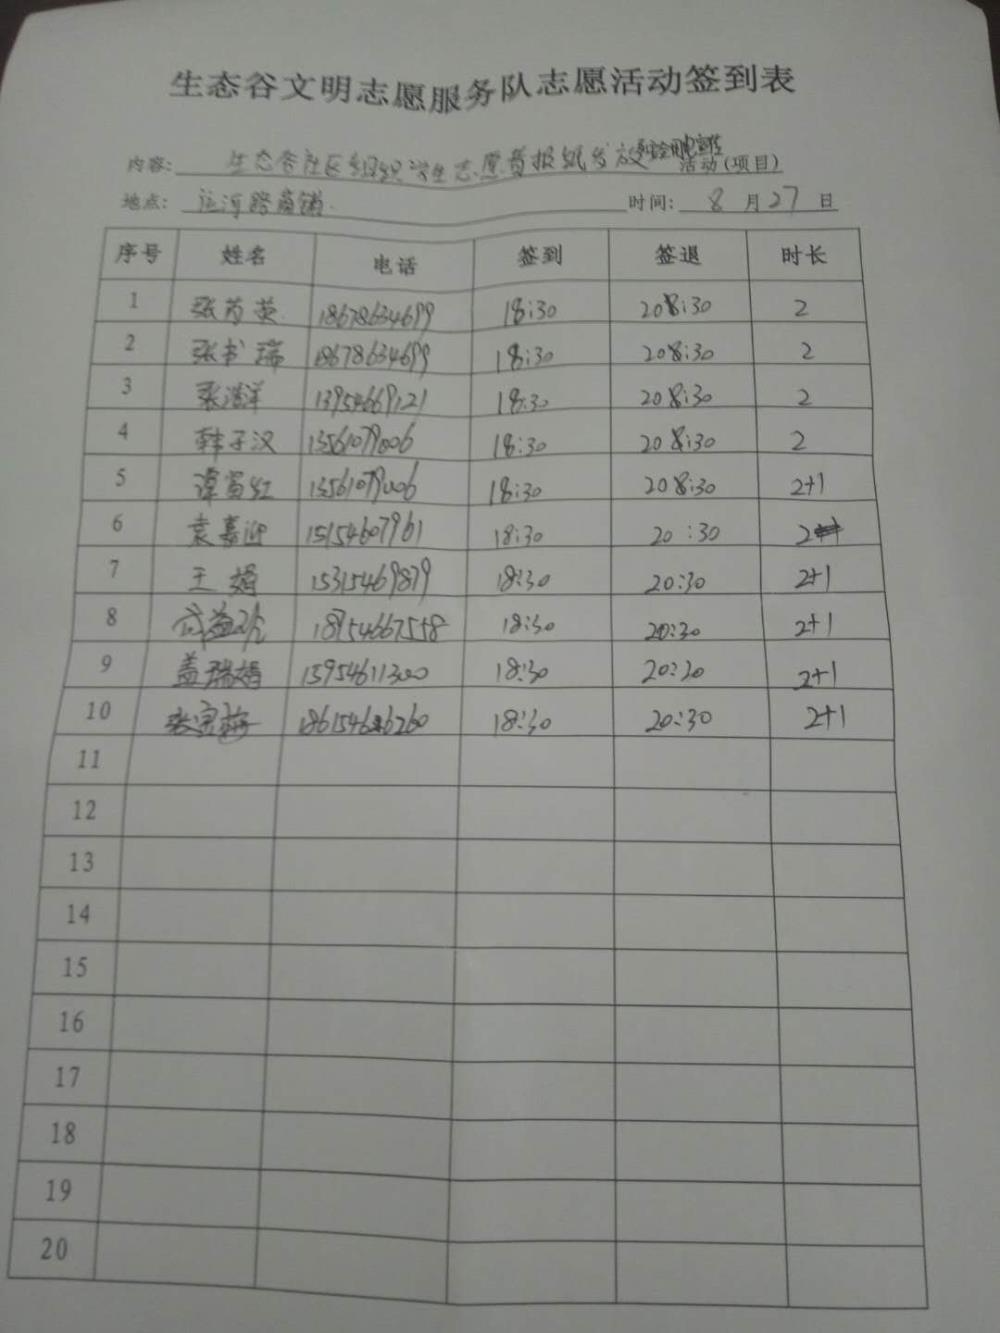 生态谷文明志愿服务队志愿活动签到表
内容: 生态谷社区组织学生志愿者报纸发放 活动(项目)
地点: 运河路商铺. 时间: 8 月 27 日
序号 姓名 电话 签到 签退 时长
1 张芮荧 18678634699 18:30 208:30 2
2 张书瑞 18678634699 18:30 208:30 2
3 张浩洋 13954669121 18:30 208:30 2
4 韩子汉 13561079006 18:30 208:30 2
5 谭富红 13561079006 18:30 208:30 2+1
6 袁嘉迎 15154607961 18:30 20:30 2
7 王娟 15315469879 18:30 20:30 2+1
8 18754667558 18:30 20:30 2+1
9 盖瑞娟 15954611300 18:30 20:30 2+1
10 张宝梅 18:30 20:30 2+1
11
12
13
14
15
16
17
18
19
20